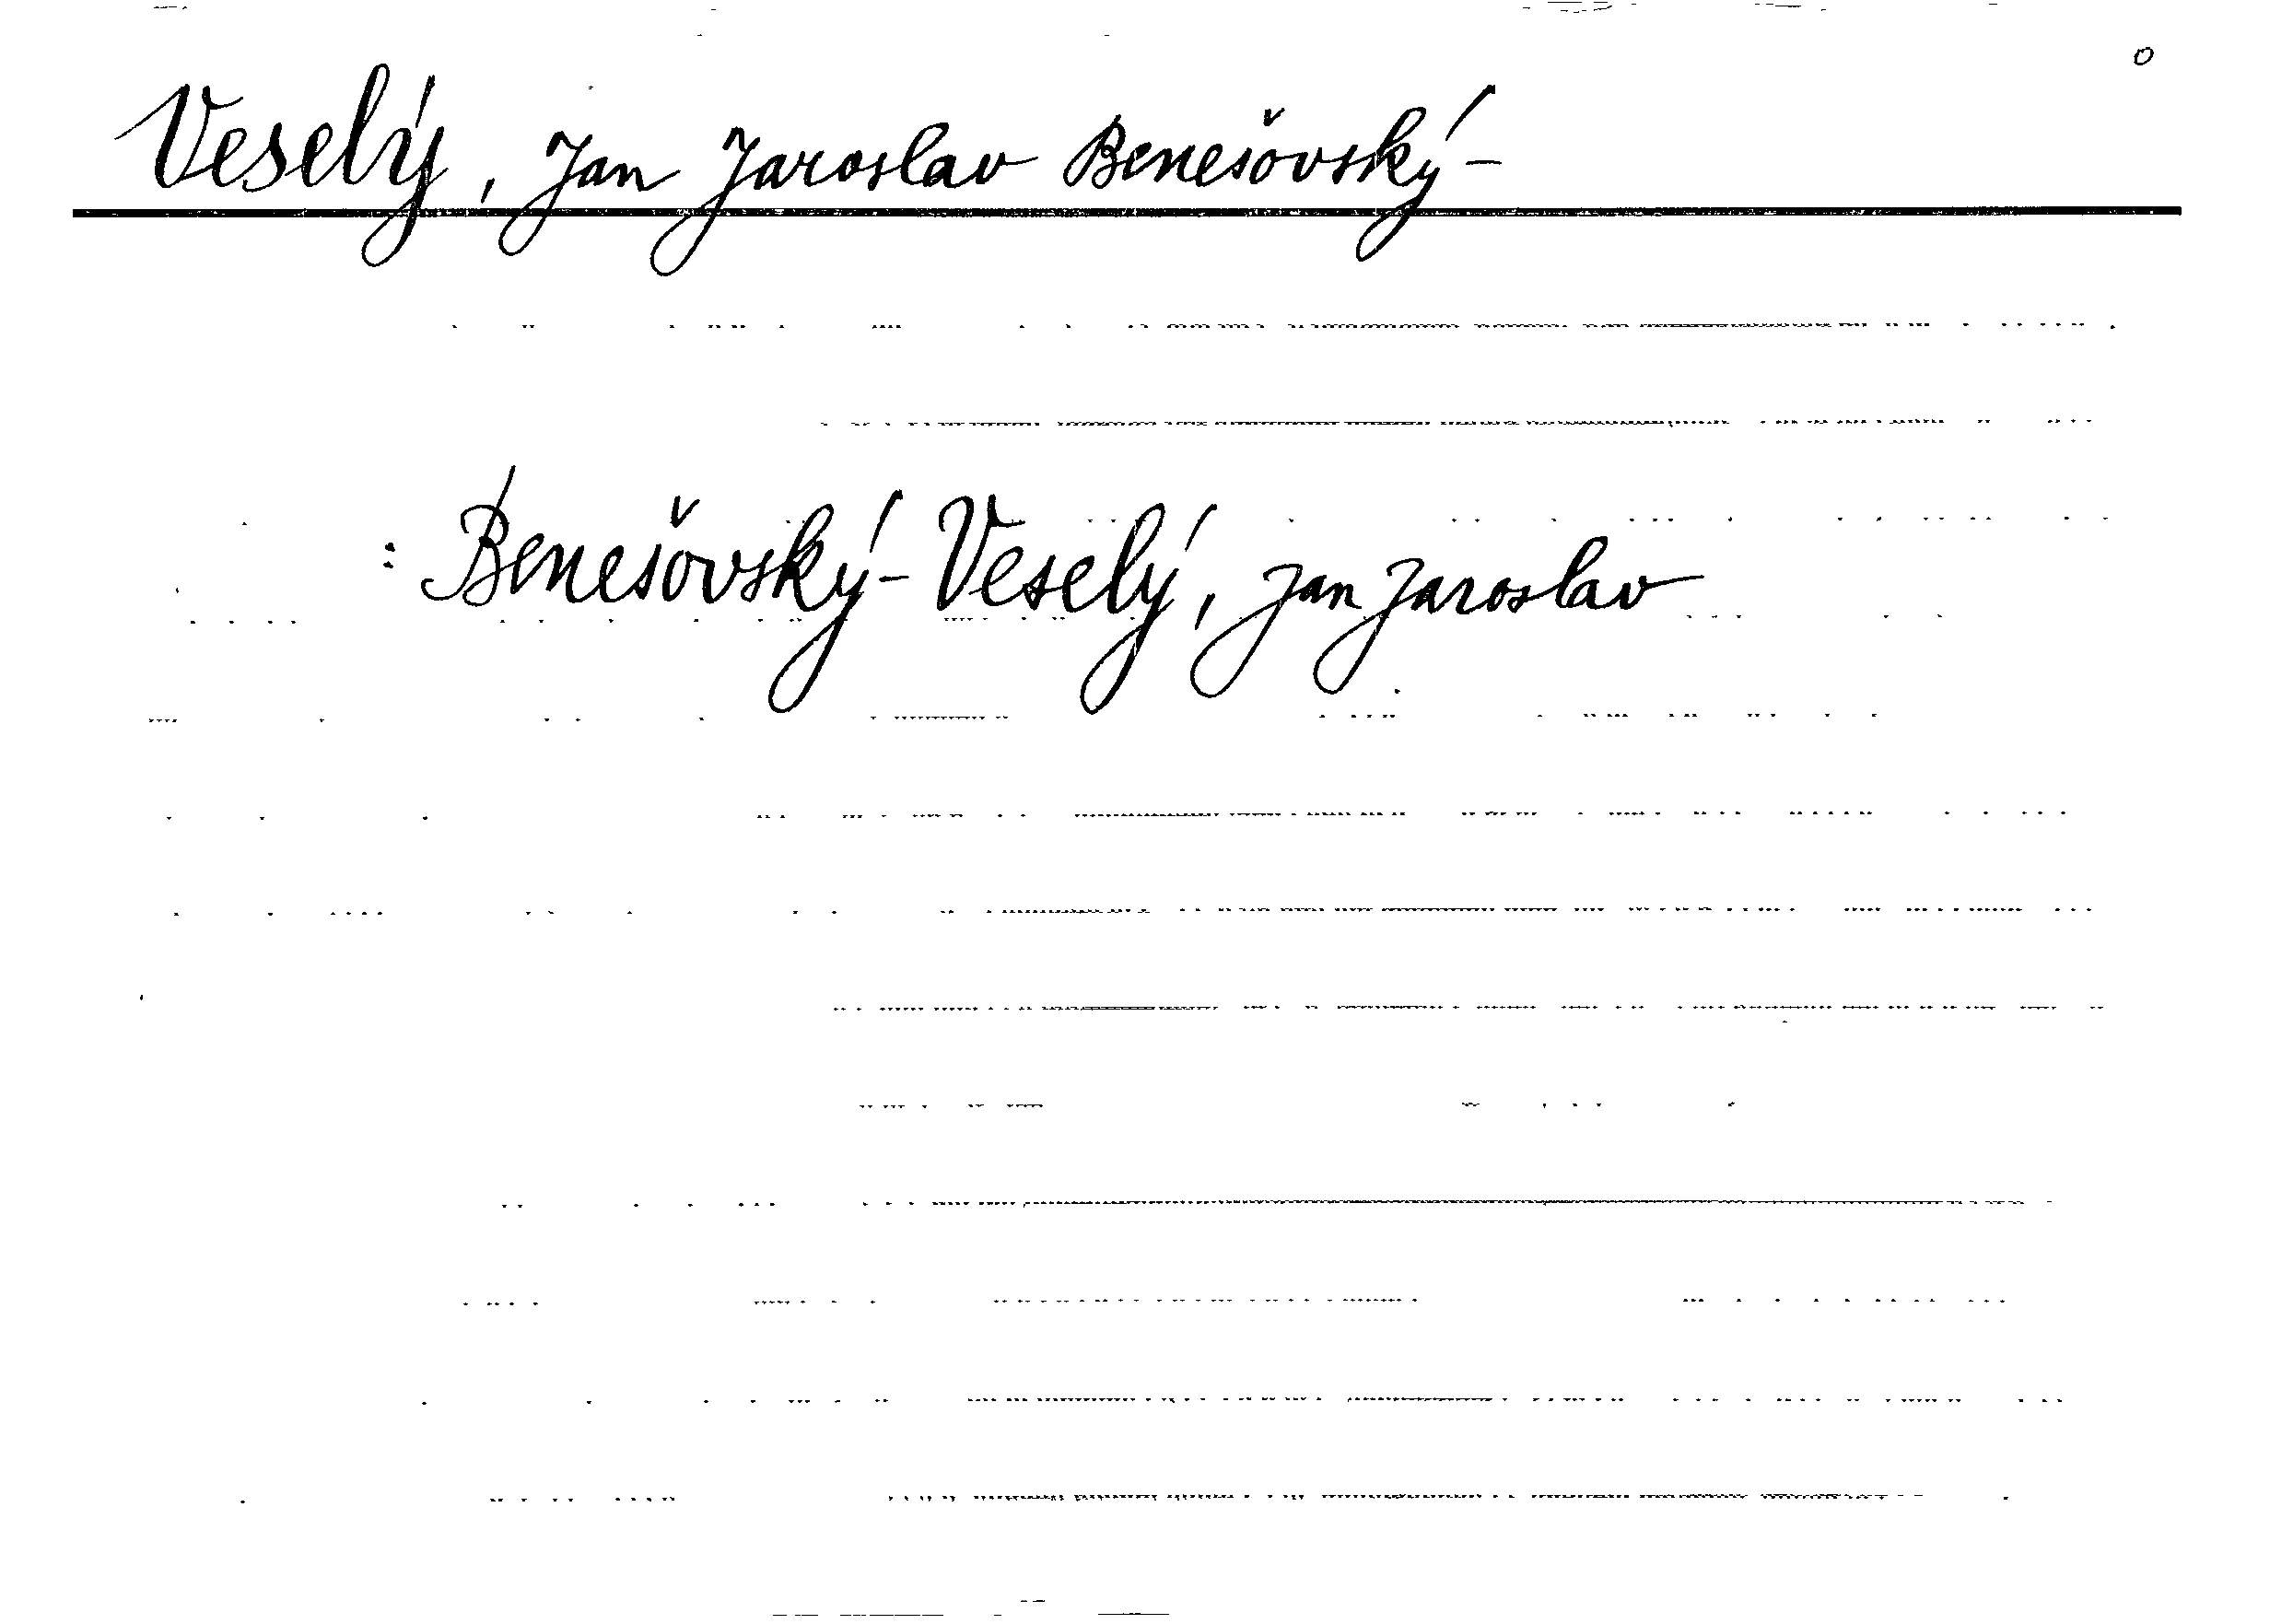 Veselý, Jan Jaroslav Benešovský-
: Benešovský-Veselý, Jan Jaroslav